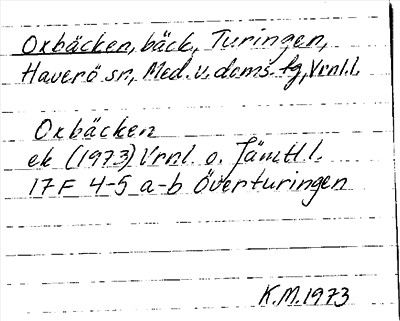 Oxbäcken, bäck, Turingen,
Haverö sn, Med. v. doms. fg, Vrnl.l.
Oxbäcken
ek (1973) Vrnl o. Jämtl.l.
17F 4-5 a-b Överturingen
K.M.1973